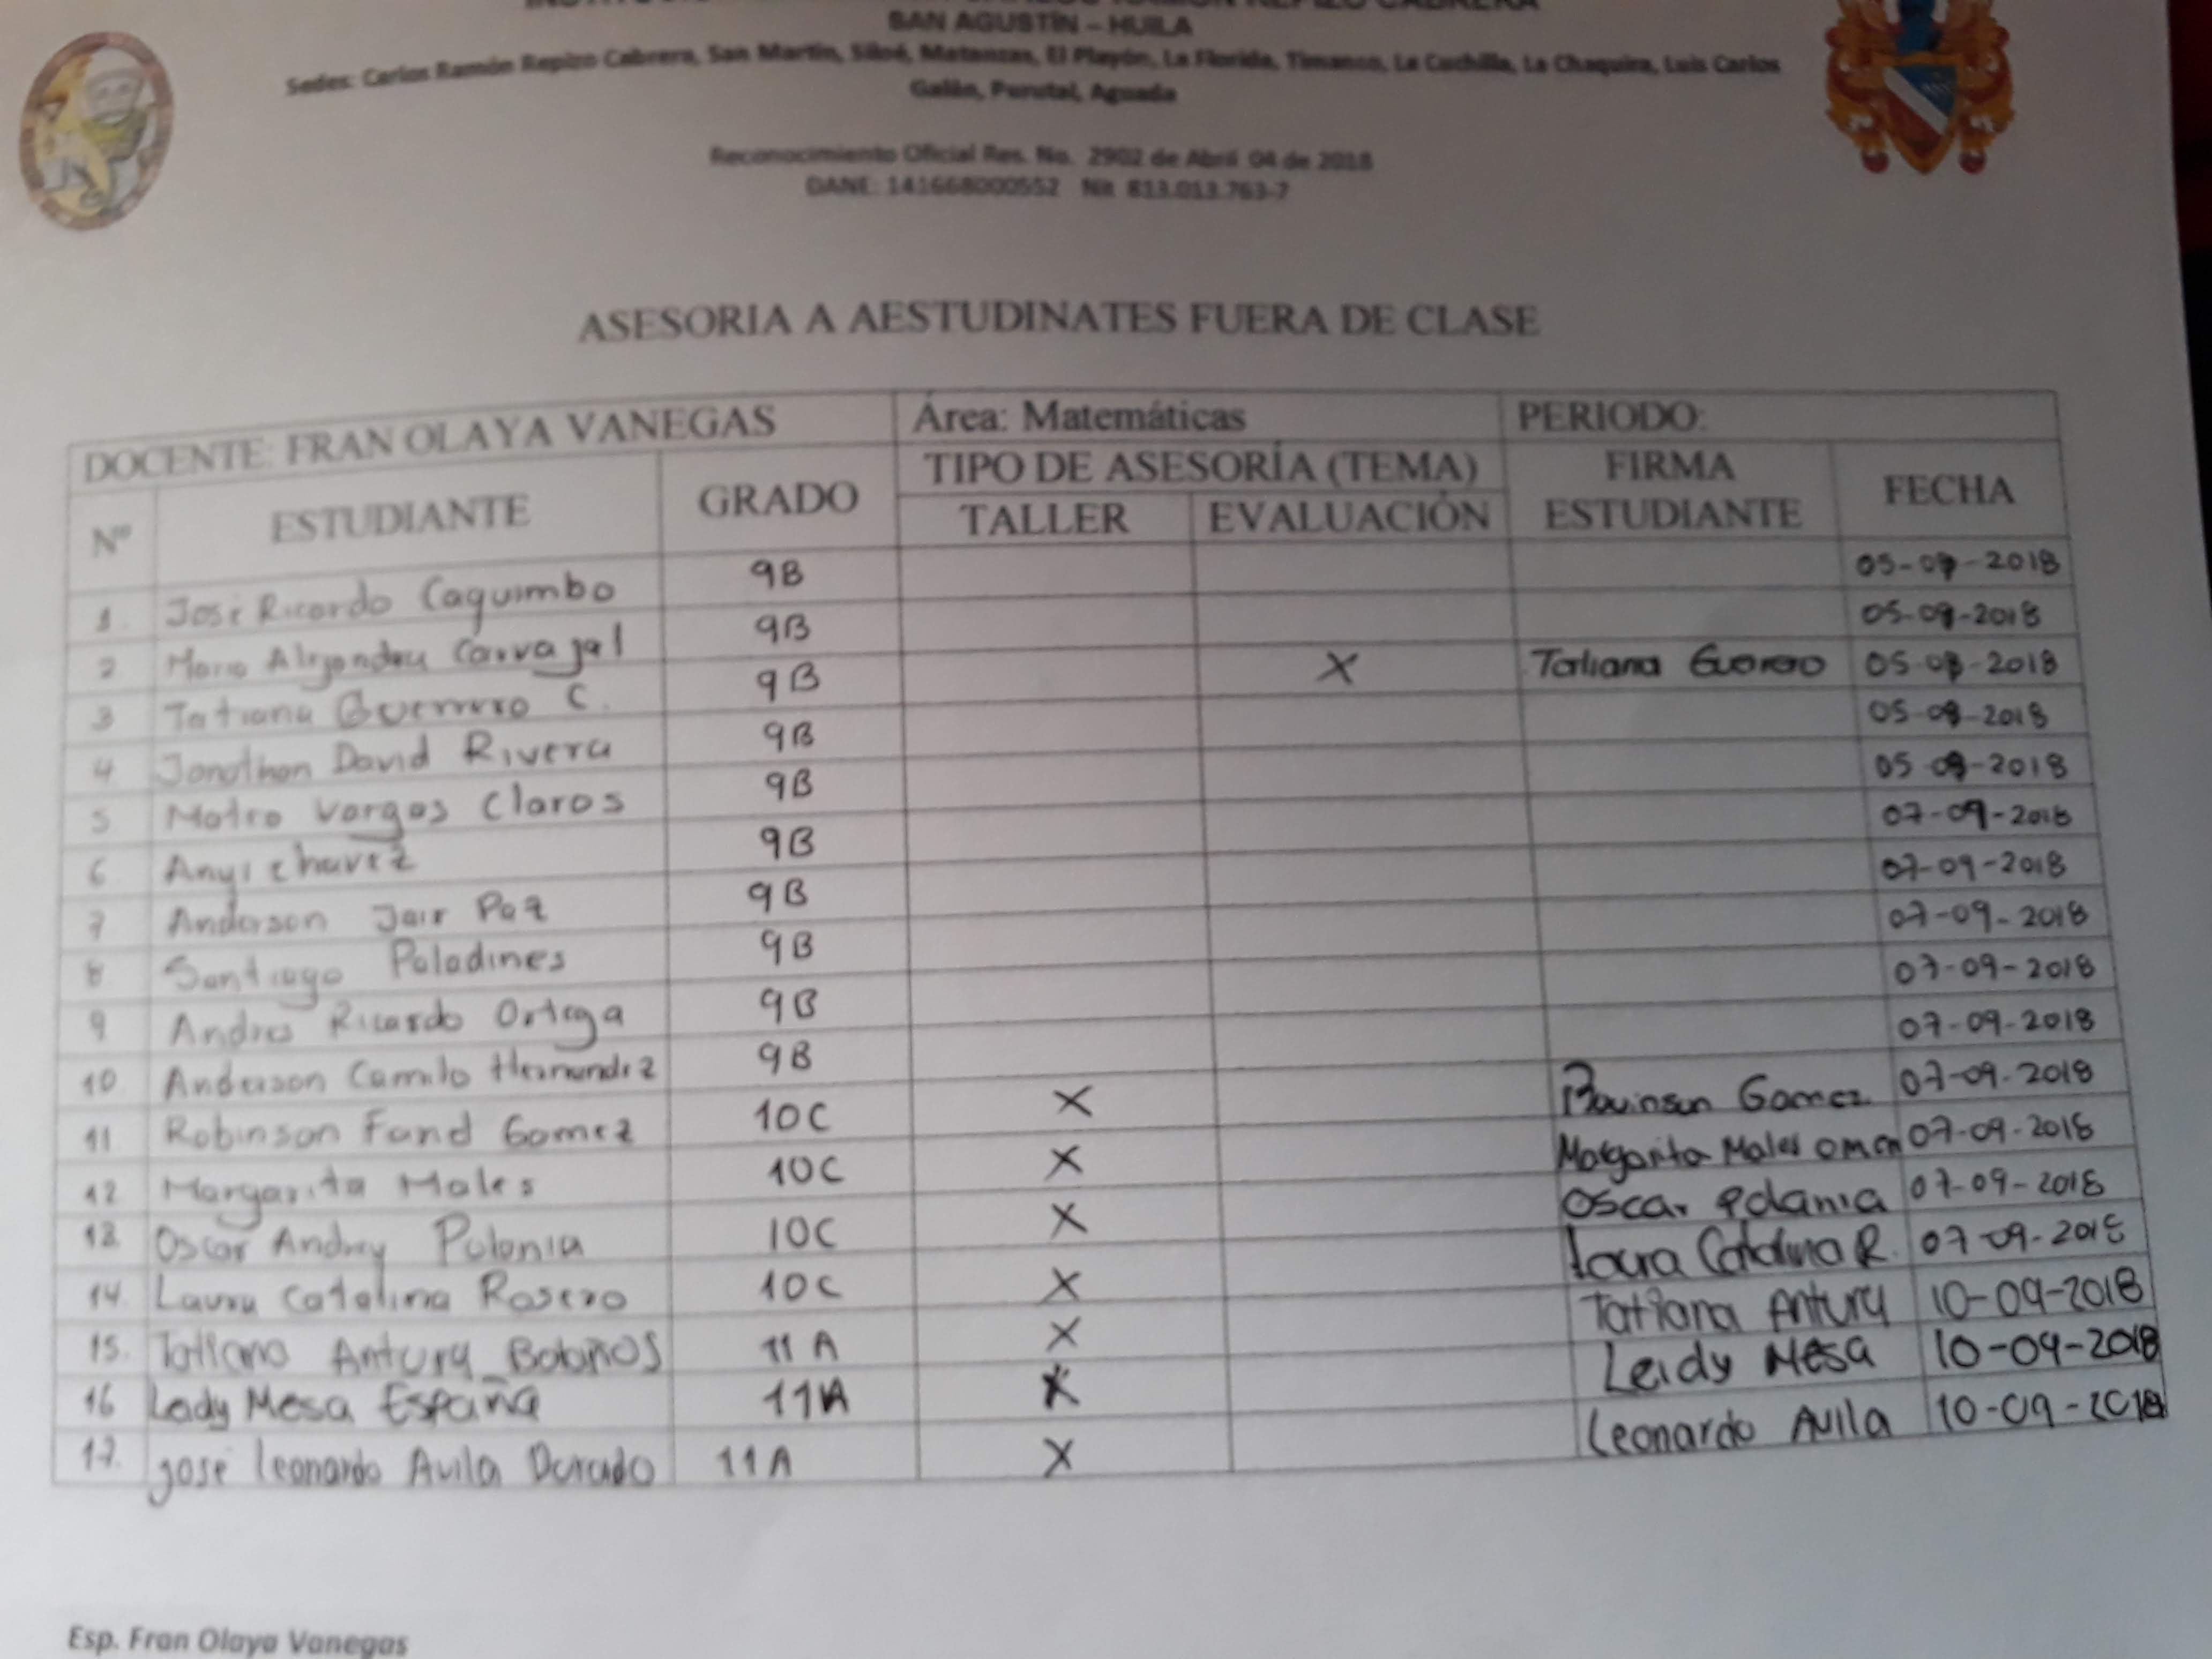 SAN AGUSTÍN – HUILA
Sedes: Carlos Ramón Repizo Cabrera, San Martín, Siloé, Matanzas, El Playón, La Florida, Timanso, La Cuchilla, La Chaquira, Luis Carlos
Galán, Purutal, Aguada
Reconocimiento Oficial Res. No. 2902 de Abril 04 de 2018
DANE: 141668000552 Nit 813.013.763-7
ASESORIA A AESTUDINATES FUERA DE CLASE
DOCENTE: FRAN OLAYA VANEGAS Área: Matemáticas PERIODO:
Nº ESTUDIANTE GRADO TIPO DE ASESORÍA (TEMA) FIRMA ESTUDIANTE FECHA
TALLER EVALUACIÓN
1. José Ricardo Caquimbo 9B 05-09-2018
2 Alejandra Carvajal 9B 05-09-2018
3 Tatiana Guerrero C. 9B X Tatiana Guerrero 05-09-2018
4 Jonathan David Rivera 9B 05-09-2018
5 Vargas Claros 9B 05-09-2018
6 Anyi Chavez 9B 07-09-2018
7 Anderson Jair Paz 9B 07-09-2018
8 Santiago Paladines 9B 07-09-2018
9 Andres Ricardo Ortega 9B 07-09-2018
10 Anderson Camilo Hernandez 9B 07-09-2018
11 Robinson Gomez 10C X Gomez 07-09-2018
12 Margarita Males 10C X Margarita Males 07-09-2018
13 Oscar Andrey Polania 10C X Oscar Polania 07-09-2018
14. Laura Catalina Rosero 10C X Laura Catalina R. 07-09-2018
15. Tatiana Antury Bolaños 11A X Tatiana Antury 10-09-2018
16 Leidy Mesa España 11A X Leidy Mesa 10-09-2018
17. José Leonardo Avila Dorado 11A X Leonardo Avila 10-09-2018
Esp. Fran Olaya Vanegas